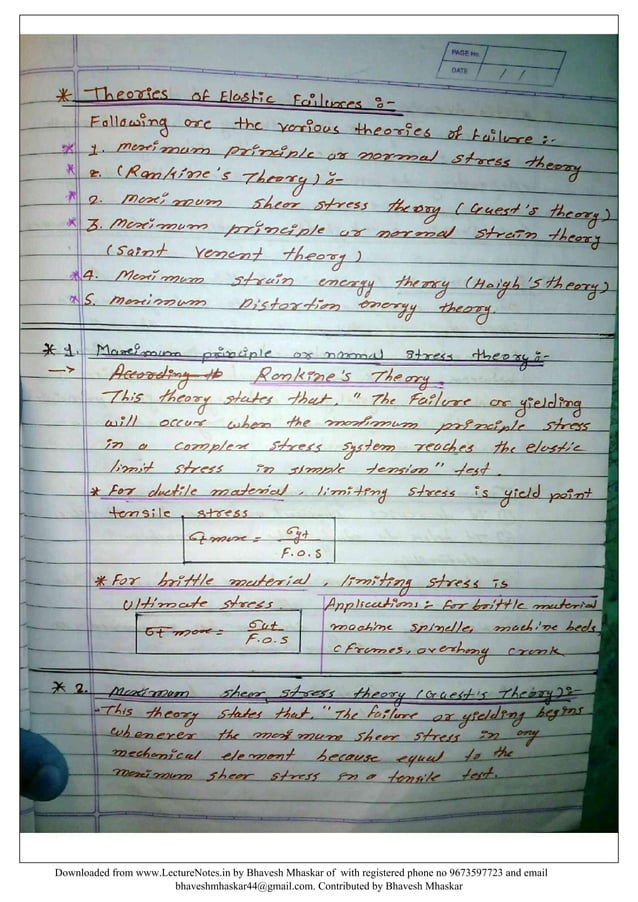 PAGE No.
DATE / /
* Theories of Elastic Failures :-
Following are the various theories of failure :-
* 1. maximum principle or normal stress theory
* 2. (Rankine's Theory) :-
* 2. maximum shear stress theory (Guest's theory)
* 3. maximum principle or normal strain theory
(Saint Venant theory)
* 4. Maximum strain energy theory (Haigh's theory)
* 5. maximum Distortion energy theory.
* 1. Maximum principle or normal stress theory :-
→ According to Rankine's Theory.
This theory states that, " The Failure or yielding
will occur when the maximum principle stress
in a complex stress system reaches the elastic
limit stress in simple tension" test.
* For ductile material, limiting stress is yield point
tensile stress
σmax = σyt / F.O.S
* For brittle material, limiting stress is
Ultimate stress.
σt max = σut / F.O.S
Applications :- For brittle material
machine spindle, machine beds,
c frames, overhung crank
* 2. Maximum shear stress theory (Guest's Theory) :-
- This theory states that, "The failure or yielding begins
whenever the maximum shear stress in any
mechanical element because equal to the
maximum shear stress in a tensile test.
Downloaded from www.LectureNotes.in by Bhavesh Mhaskar of with registered phone no 9673597723 and email
bhaveshmhaskar44@gmail.com. Contributed by Bhavesh Mhaskar